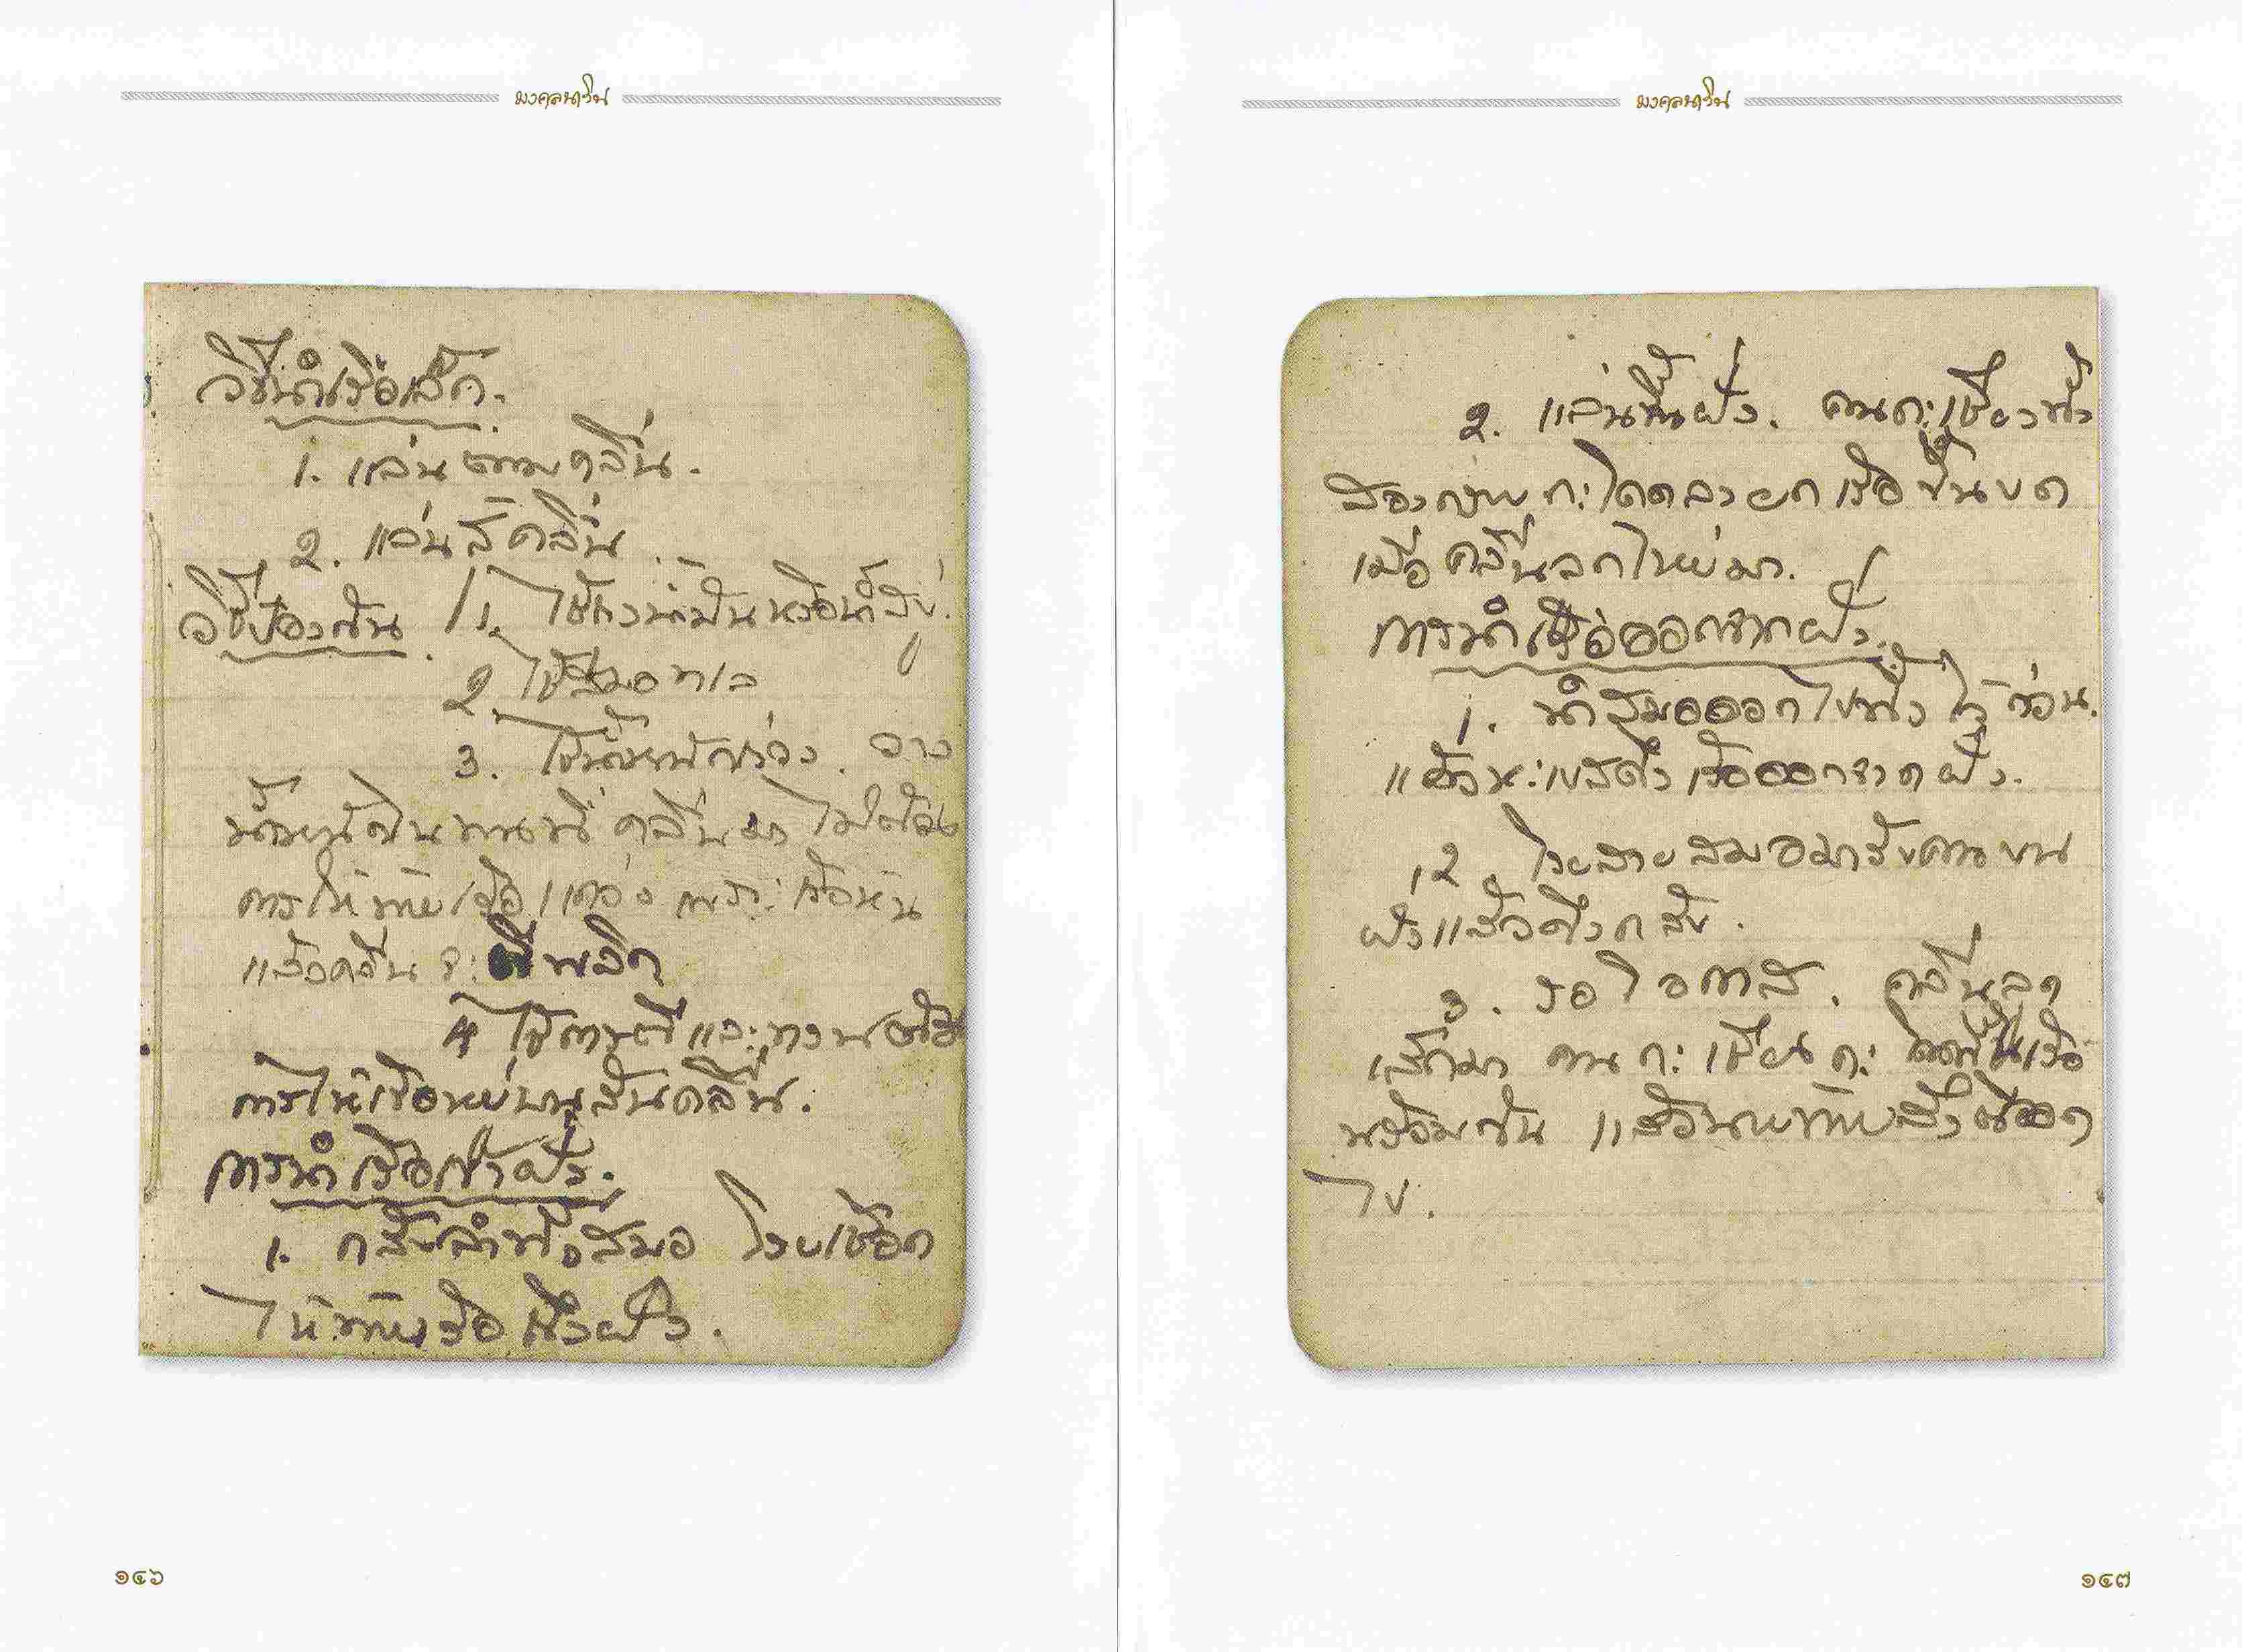 มงคลนาวิน
วิธีนำเรือเล็ก.
1. แล่นตามคลื่น.
2. แล่นสู้คลื่น
วิธีป้องกัน 1. ใช้ถุงน้ำมันหรือน้ำสบู่.
2. ใช้สมอทะเล
3. ใช้น้ำหนักถ่วง. วาง
น้ำหนักในทางที่คลื่นมา ไม่ต้อง
การให้ท้ายเรือแกว่ง เพราะเรือหัน
แล้วคลื่นจะตีพลิก
4 ใช้กรรเชียงและ
การให้เรืออยู่บนสันคลื่น.
การนำเรือเข้าฝั่ง.
1. กลับลำทิ้งสมอ โรยเชือก
ให้ท้ายเรือเข้าฝั่ง.
๑๔๖
มงคลนาวิน
2. แล่นขึ้นฝั่ง. คนกะเชียงทั้ง
สองกราบกะโดดลงยกเรือขึ้นบก
เมื่อคลื่นลูกใหญ่มา.
การนำเรือออกจากฝั่ง.
1. นำสมอออกไปทิ้งไว้ก่อน.
แล้วจะได้ดึงเรือออกจากฝั่ง.
2. โรยสายสมอมารับคนบน
ฝั่งแล้วดึงกลับ.
3. รอโอกาส. คลื่นลูก
เล็กมา คนกะเชียงกะโดดขึ้นเรือ
พร้อมกัน แล้วนายท้ายสั่งตีออก
ไป.
๑๔๗